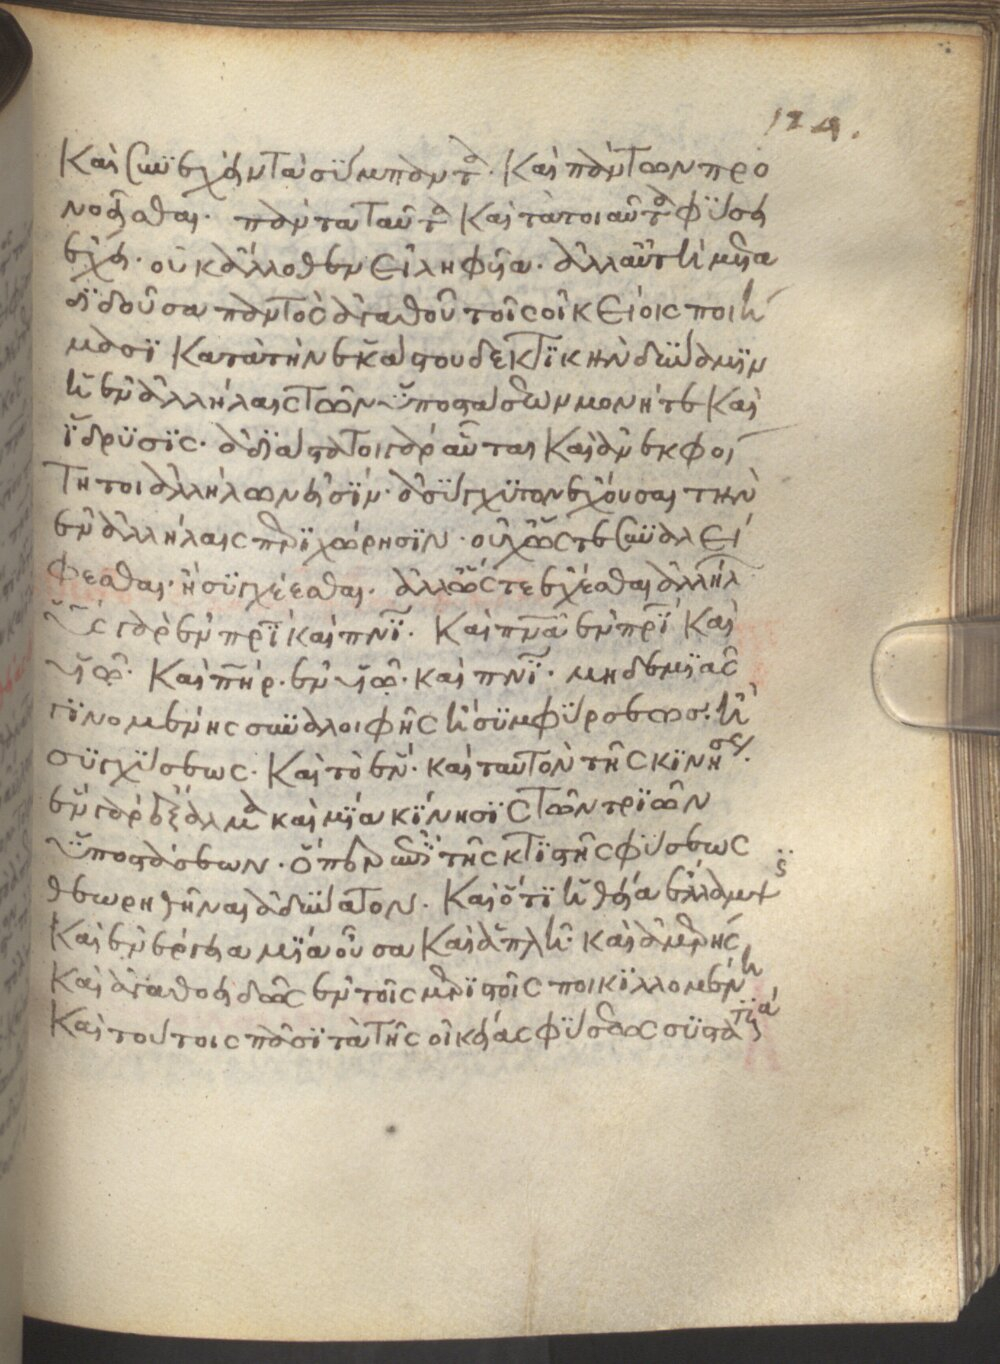 124.
καὶ συνέχοντα σύμπαντα· καὶ πάντων προ
νοεῖσθαι· πάντα ταῦτα καὶ τὰ τοιαῦτα φύσει
ἔχει· οὐκ ἄλλοθεν εἰληφυῖα· ἀλλ' αὐτὴ μετα
διδοῦσα παντὸς ἀγαθοῦ τοῖς οἰκείοις ποιή
μασι κατὰ τὴν ἑκάστου δεκτικὴν δύναμιν
ἡ ἐν ἀλλήλαις τῶν ὑποστάσεων μονή τε καὶ
ἵδρυσις· ἀδιάστατοι γὰρ αὗται καὶ ἀνεκφοί
τητοι ἀλλήλων εἰσίν· ἀσύγχυτον ἔχουσαι τὴν
ἐν ἀλλήλαις περιχώρησιν· οὐχ ὥστε συναλεί
φεσθαι· ἢ συγχέεσθαι· ἀλλ' ὥστε ἔχεσθαι ἀλλήλ
υἱὸς γὰρ ἐν πρὶ καὶ πνὶ· καὶ πνα ἐν πρὶ καὶ
υἱῷ· καὶ πηρ· ἐν υἱῷ· καὶ πνὶ· μηδεμιᾶς
γινομένης συναλοιφῆς ἢ συμφύρσεως· ἢ
συγχύσεως· καὶ τὸ ἓν· καὶ ταυτὸν τῆς κινήσεως·
ἓν γὰρ ἐξαλμα καὶ μία κίνησις τῶν τριῶν
ὑποστάσεων· ὅπερ ἐπὶ τῆς κτιστῆς φύσεως
θεωρηθῆναι ἀδύνατον· καὶ ὅτι ἡ θεία ἔλλαμψις
καὶ ἐνέργεια μία οὖσα καὶ ἁπλῆ· καὶ ἀμερὴς
καὶ ἀγαθοειδῶς ἐν τοῖς μεριστοῖς ποικιλλομένη
καὶ τούτοις πᾶσι τὰ τῆς οἰκείας φύσεως συστατικὰ